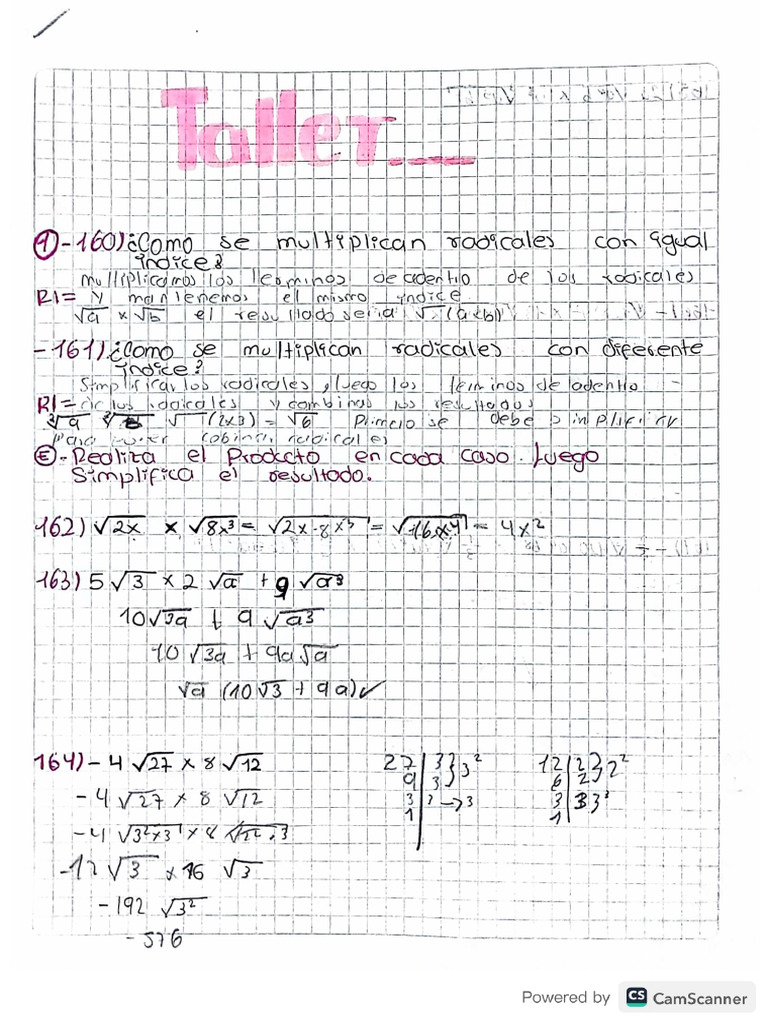 Taller...
①-160) ¿Como se multiplican radicales con igual
índice?
multiplicamos los terminos de adentro de los radicales
R1= y mantenemos el mismo indice
√a × √b el resultado sería √(a×b)
-161) ¿Como se multiplican radicales con diferente
índice?
Simplificar los radicales, luego los terminos de adentro
R1= de los radicales y combinas los resultados
√(2x3) = √6 Primero se debe simplificar
para poder cobinar radicales
②.-Realiza el Producto en cada caso. Luego
Simplifica el resultado.
162) √2x × √8x³ = √2x·8x³ = √16x⁴ = 4x²
163) 5√3 × 2√a + 9√a³
10√3a + 9√a³
10√3a + 9a√a
√a (10√3 + 9a) ✓
164) -4√27 × 8√12
27 | 3 } 3²
12 | 2 } 2²
9 | 3
6 | 2
-4√27 × 8√12
3 | 3 → 3
3 | 3 3¹
1
1
-4√3²×3¹ × 8√2²·3
-12√3 × 16√3
-192√3²
-576
Powered by CS CamScanner